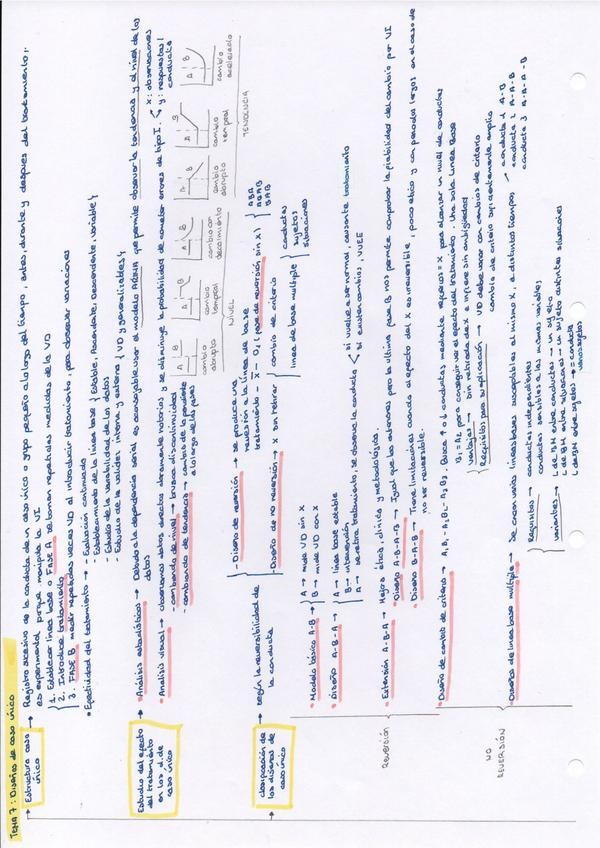 TEMA 7: Diseños de caso único
Estructura caso único → Registro sucesivo de la conducta de un caso único o grupo pequeño a lo largo del tiempo, antes, durante y después del tratamiento;
es experimental porque manipula la VI.
1. Establecer línea base o FASE A se toman repetidas medidas de la VD
2. Introduce tratamiento
3. FASE B medir repetidas veces VD al introducir tratamiento, para observar variaciones
• Efectividad del tratamiento → - Evaluación continuada
- Establecimiento de la línea base { Estable, Ascendente, Descendente, variable }
- Estudio de la variabilidad de los datos
- Estudio de la validez interna y externa { VD y generalidades }
Estudio del efecto del tratamiento en los d. de caso único
• Análisis estadístico → Debido a la dependencia serial es aconsejable usar el modelo ARIMA que permite observar la tendencia y el nivel de los datos
• Análisis visual → observamos datos, efectos claramente notorios y se disminuye la probabilidad de cometer errores de tipo I.
x: observaciones
y: respuestas/conducta
- cambiando de nivel → brusca discontinuidad
- cambiando de tendencia → cambio de la pendiente a lo largo de las fases
A B
cambio abrupto
A B
cambio temporal
A B
cambio con decaimiento
NIVEL
A B
cambio abrupto
A B
cambio temporal
A B
cambio acelerado
TENDENCIA
clasificación de los diseños de caso único
→ según la reversibilidad de la conducta
- Diseño de reversión → se produce una reversión a la línea de base
tratamiento - x - O, (fase de reversión, sin x)
ABA
ABAB
BAB
- Diseño de no reversión → x sin retirar
cambio de criterio
línea base multiple
conductas
sujetos
situaciones
REVERSIÓN
• Modelo básico A-B →
A → mide VD sin X
B → mide VD con X
• Diseño A-B-A →
A → línea base estable
B → intervención
A → se retira tratamiento, se observa la conducta
si vuelve a ser normal, causante tratamiento
si existen cambios, VVEE
• Extensión A-B-A → Mejora ética, clínica y metodológica.
• Diseño A-B-A-B → Igual que los anteriores, pero la última fase B nos permite comprobar la fiabilidad del cambio por VI
• Diseño B-A-B → Tiene limitaciones cuando el efecto del X es irreversible, poco ético y con periodo largo en el caso de no ser reversible.
NO REVERSIÓN
• Diseño de cambio de criterio → Busca ↑ o ↓ conductas mediante refuerzos = X para alcanzar un nivel de conductas
para conseguir ver el efecto del tratamiento. Una sola Línea Base
Ventajas → Sin retirada de X e infiere sin ambigüedad
Requisitos para su aplicación → VD debe variar con cambios de criterio
cambio de criterio suficientemente amplio
• Diseños de línea base multiple → Se crean varias líneas bases susceptibles al mismo X, a distintos tiempos
conducta 1 A-B
conducta 2 A-A-B
conducta 3 A-A-A-B
Requisitos → conductas independientes
conductas sensibles a las mismas variables
variantes →
↳ de BM entre conductas → un sujeto
↳ de BM entre situaciones → un sujeto distintas situaciones
↳ de BM entre sujetos → = conducta varios sujetos